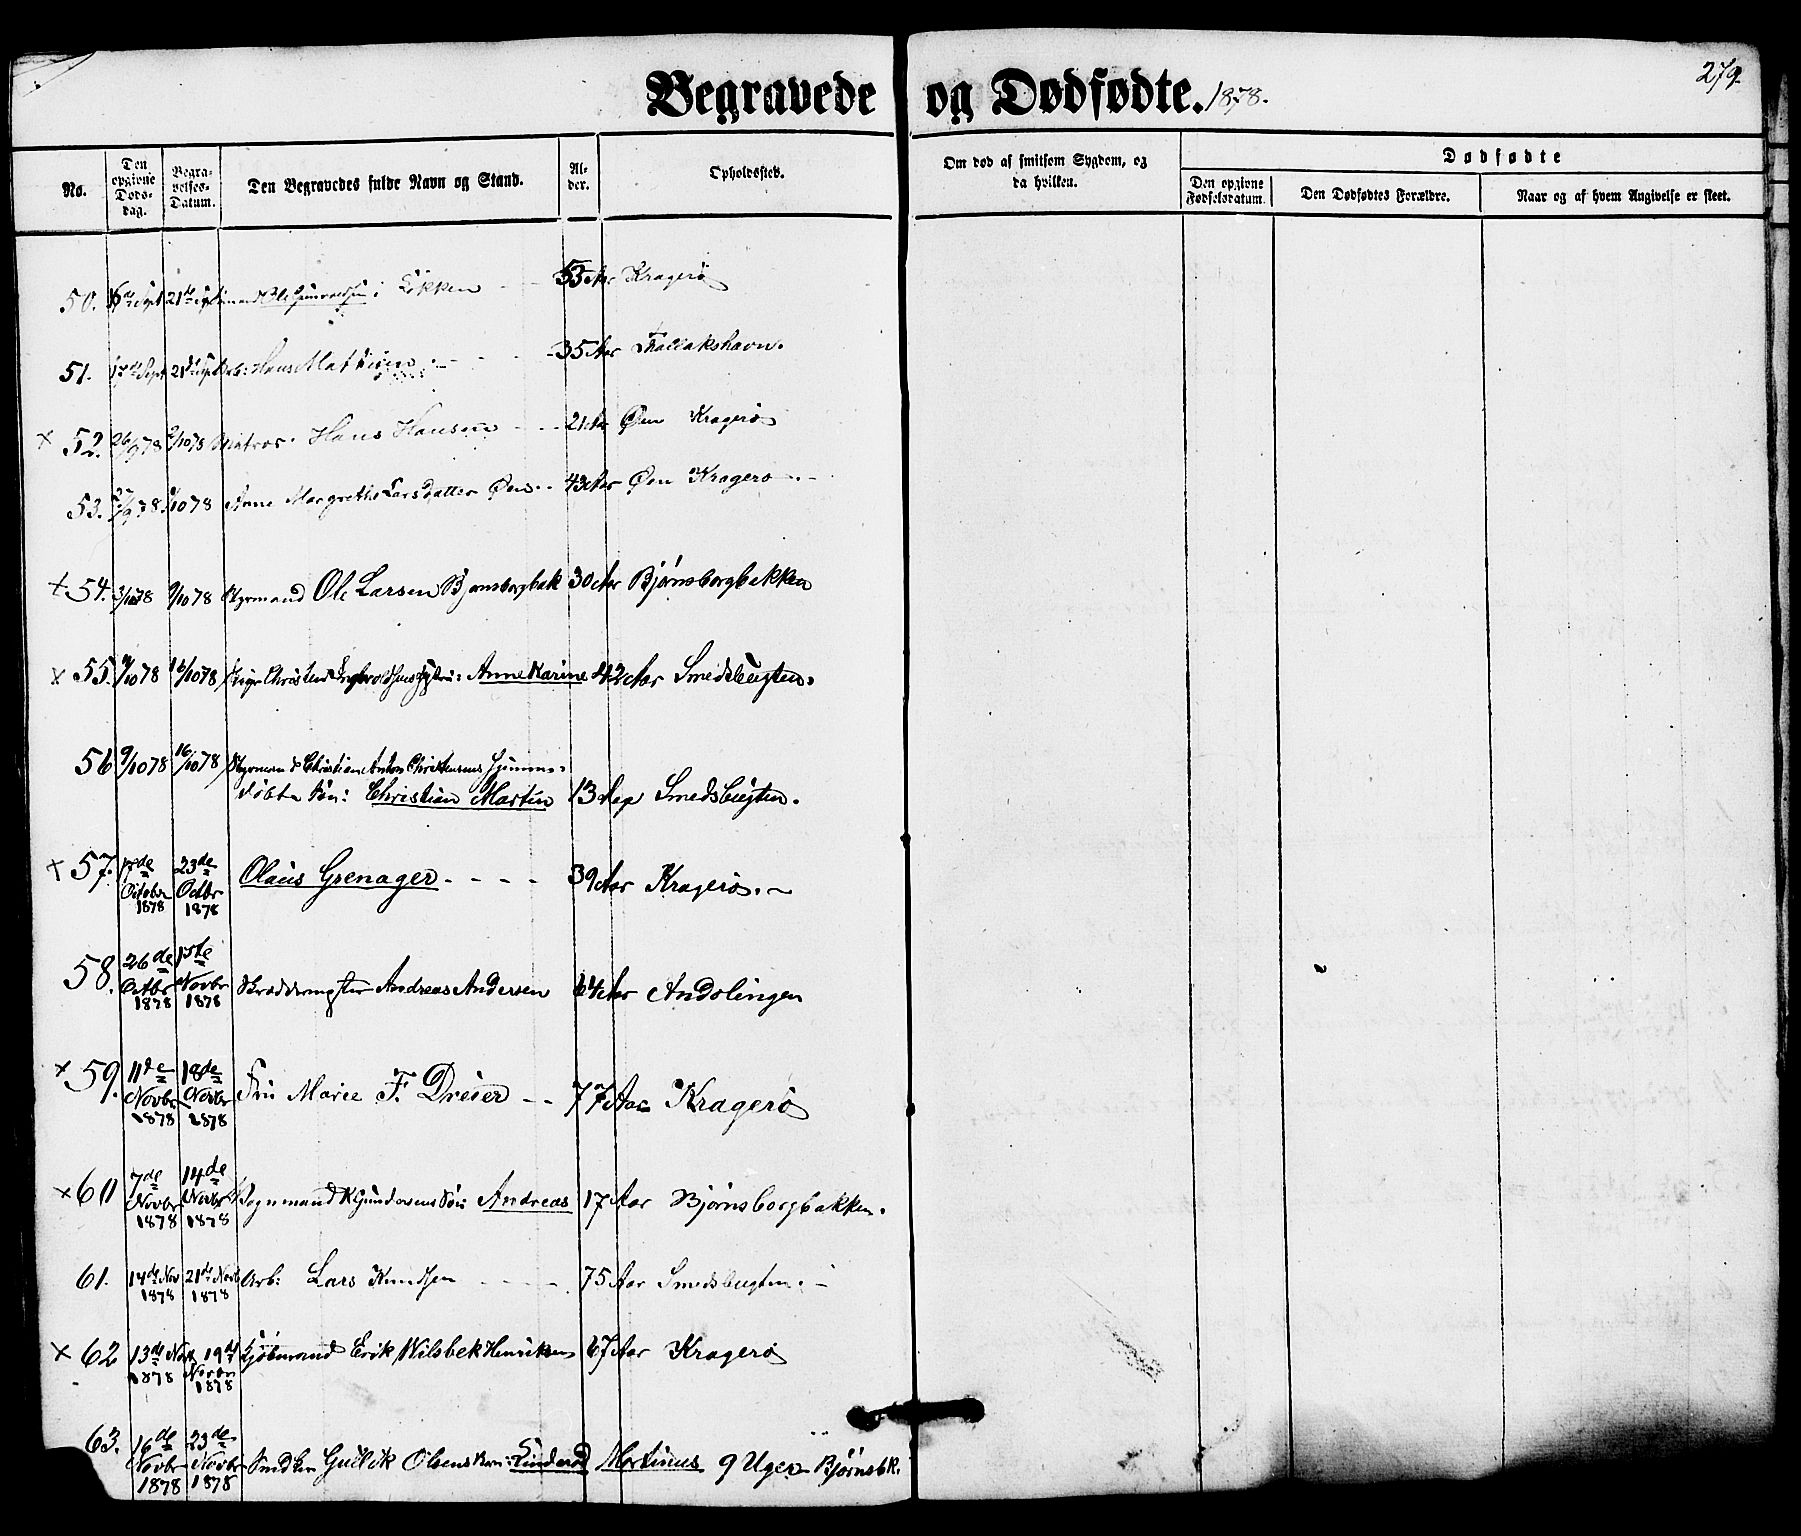 Begravede og Dødfødte. 1878.
279.
No.
Den opgivne Døds-dag.
Begra-velses-Datum.
Den Begravedes fulde Navn og Stand.
Al-der.
Opholdssted.
Om død af smitsom Sygdom, og da hvilken.
Dødfødte
Den opgivne Fødselsdatum.
Den Dødfødtes Forældre.
Naar og af hvem Angivelse er skeet.
50. Sept 21de Sept Ole i Løkken - - 53 Aar Kragerø
51. 17de Sept 21de Sept Arb: Hans - - - - 35 Aar Tallakshavn.
x 52. 26/9 78 2/10 78 Matros. Hans Hansen - - - 21 Aar Øen Kragerø
53. /9 78. /10 78 Anne Margrethe Larsdatter Øen - - 43 Aar Øen Kragerø - . -
x 54. 3/10 78 9/10 78 Styrmand Ole Larsen Bjørnsborgbak 30 Aar Bjørnsborgbakken
x 55. 9/10 78 16/10 78 Christen Anne Karine 42 Aar Smedsbugten.
56 9/10 78 16/10 78 Styrman Christian Anton Christensens hjemme=
døbte Søn: Christian Martin 13 Dage Smedsbugten.
x 57. 17de Octobr 1878 23de Octbr 1878 Olaus Grenager - - - - 39 Aar Kragerø. -
58. 26de Octbr 1878 1ste Novbr 1878 Skræddermester Andreas Andersen 64 Aar Andolingen
x 59. 11de Novbr 1878 18de Novbr 1878 Fru Marie F. Dreier - - 77 Aar Kragerø
x 60 7de Novbr 1878 14de Novbr 1878 K Gundersens Søn Andreas 17 Aar Bjørnsborgbakken.
61. 14de Nov 1878 21de Novb 1878 Arb: Lars Knudsen - - - - 75 Aar Smedsbugten. -
x 62 13de Nov 1878 19de Novbr 1878 Kjøbmand Erik Nilsbek Henriksen 67 Aar Kragerø
63. 16de Novbr 1878 23de Novbr 1878 Snedker Gulik Olsens Barn: Linderød Martinus 9 Uger Bjørnsbk.